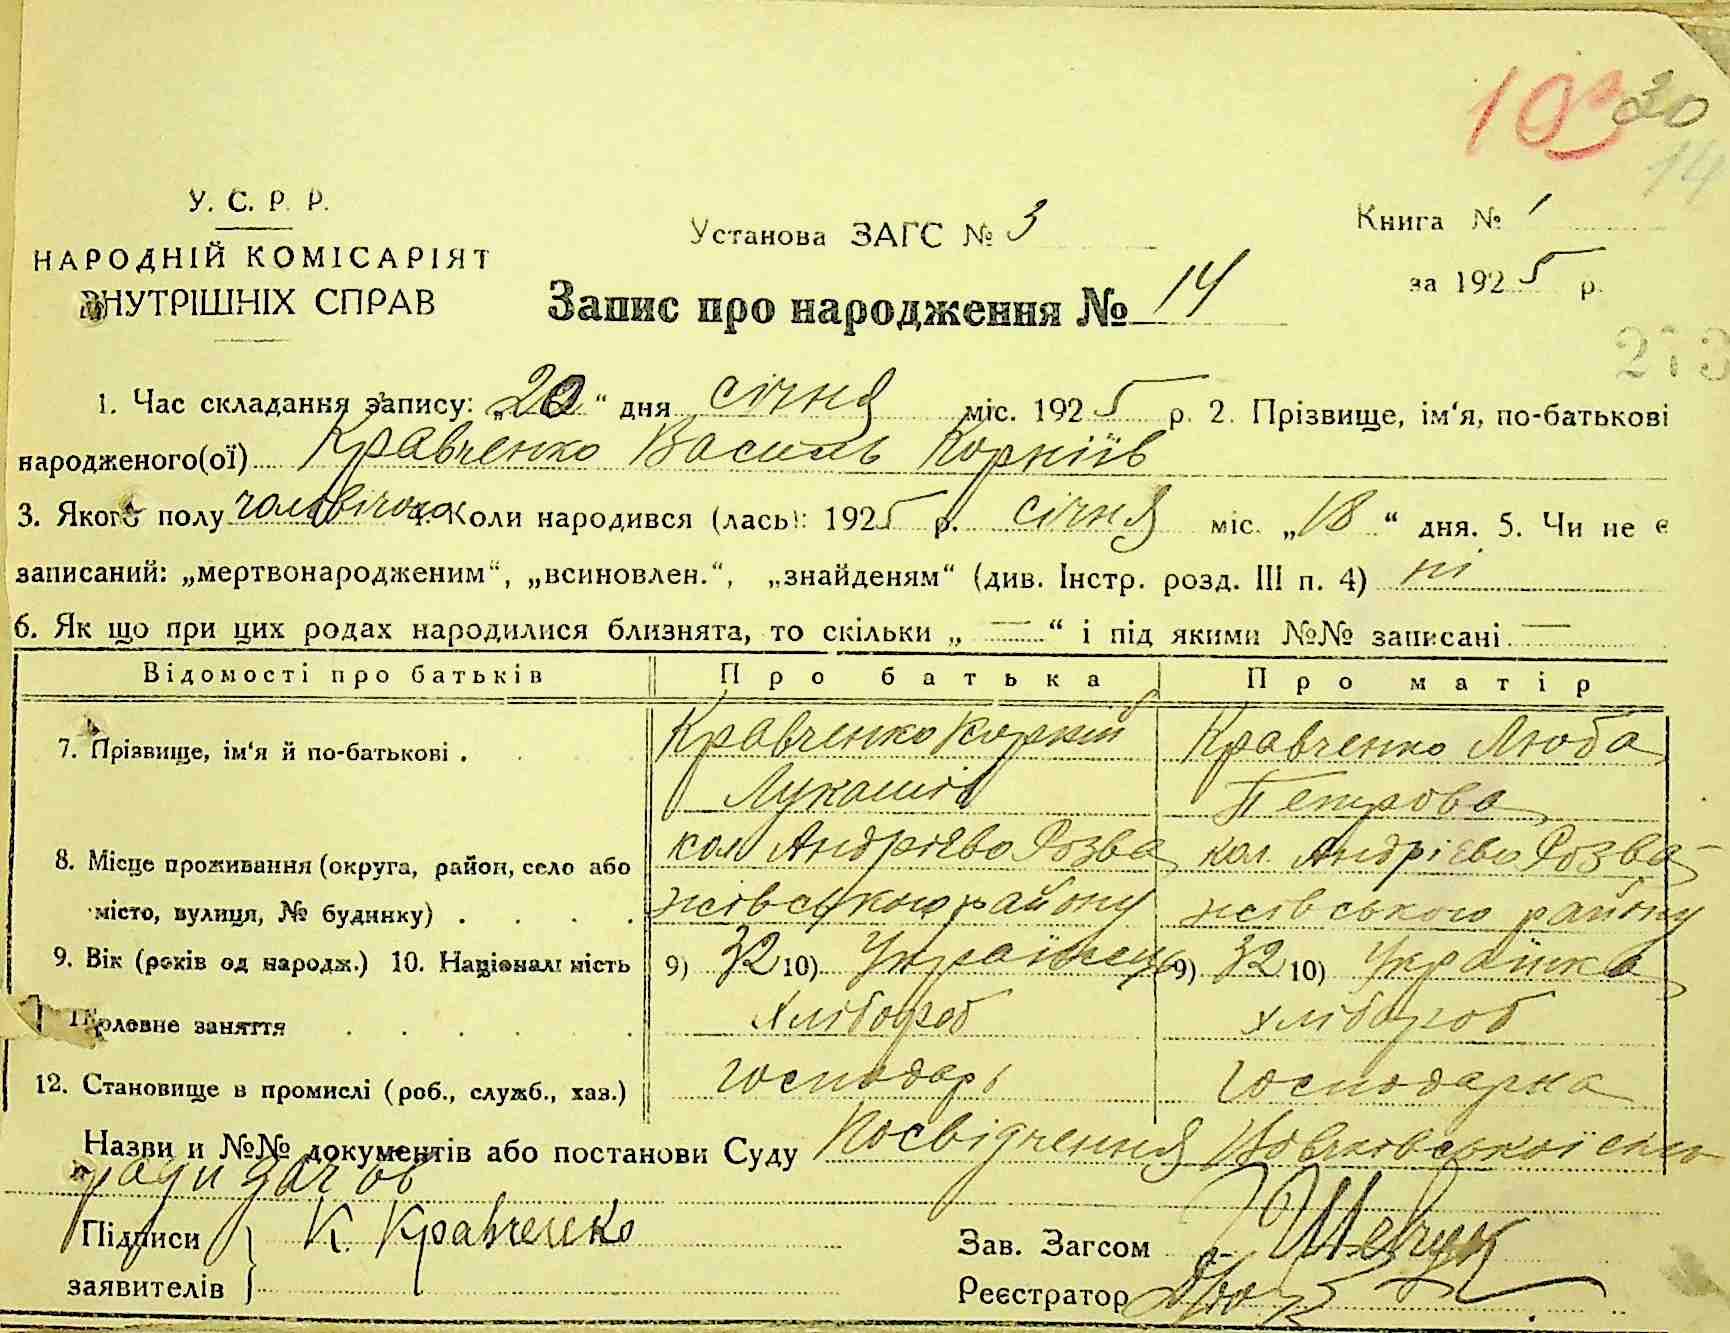 10 30
14
У. С. Р. Р.
НАРОДНІЙ КОМІСАРІЯТ
ВНУТРІШНІХ СПРАВ
Установа ЗАГС № 3
Книга № 1
за 1925 р.
Запис про народження № 14
273
1. Час складання запису: „20“ дня січня міс. 1925 р. 2. Прізвище, ім‘я, по-батькові
народженого(ої) Кравченко Василь Корніїв
3. Якого полу чоловічого 4. Коли народився (лась): 1925 р. січня міс. „18“ дня. 5. Чи не є
записаний: „мертвонародженим“, „всиновлен.“, „знайденям“ (див. Інстр. розд. III п. 4) ні
6. Як що при цих родах народилися близнята, то скільки „ — “ і під якими №№ записані —
Відомості про батьків Про батька Про матір
7. Прізвище, ім‘я й по-батькові . Кравченко Корній Кравченко Люба
Лукашів Петрова
8. Місце проживання (округа, район, село або кол Андрієво Розва кол. Андрієво Розва-
місто, вулиця, № будинку) . . . . жівського району жівського району
9. Вік (років од народж.) 10. Національність 9) 32 10) Українець 9) 32 10) Українка
11. Головне заняття . . . . хлібороб хлібороб
12. Становище в промислі (роб., служб., хаз.) господарь господарка
Назви и №№ документів або постанови Суду Посвідчення
ради
Підписи К. Кравченко Зав. Загсом Шевчук
заявителів Реєстратор